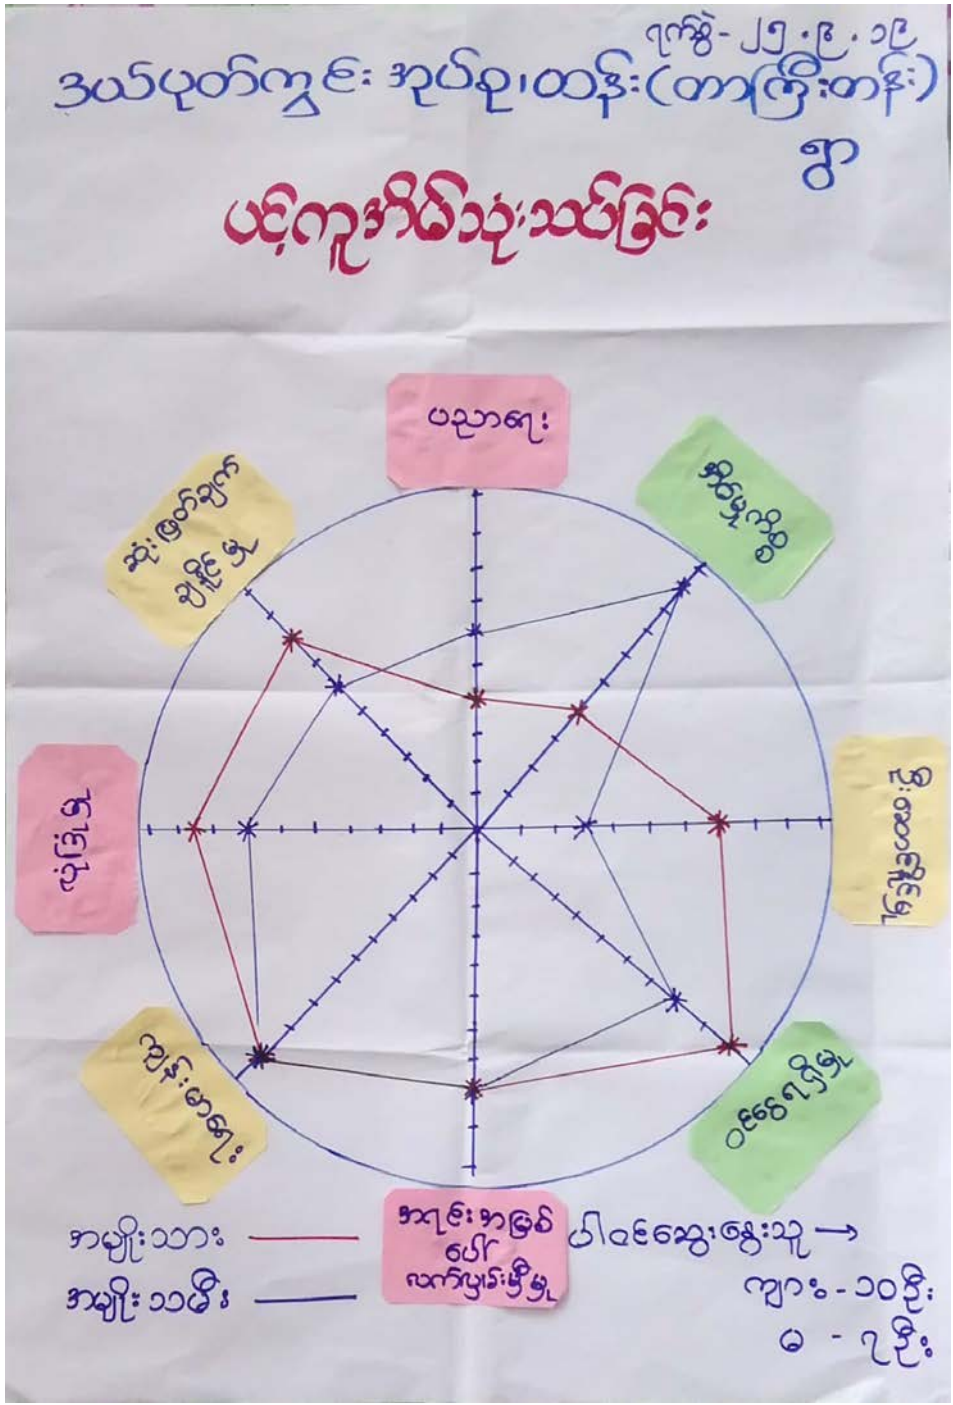 ရက်စွဲ - ၂၅.၉.၁၉
ဒယ်ပုတ်ကွင်း အုပ်စု၊ တန်း(တာကြီးတန်း)
ရွာ
ပင့်ကူအိမ်သုံးသပ်ခြင်း
ပညာရေး
အိမ်မှုကိစ္စ
ဦးဆောင်နိုင်မှု
ဝင်ငွေရရှိမှု
အရင်းအမြစ်
ပေါ်
လက်လှမ်းမှီမှု
ကျန်းမာရေး
လုံခြုံမှု
ဆုံးဖြတ်ချက်
ချနိုင်မှု
အမျိုးသား
အမျိုးသမီး
ပါဝင်ဆွေးနွေးသူ →
ကျား - ၁၀ဦး
မ - ၇ဦး